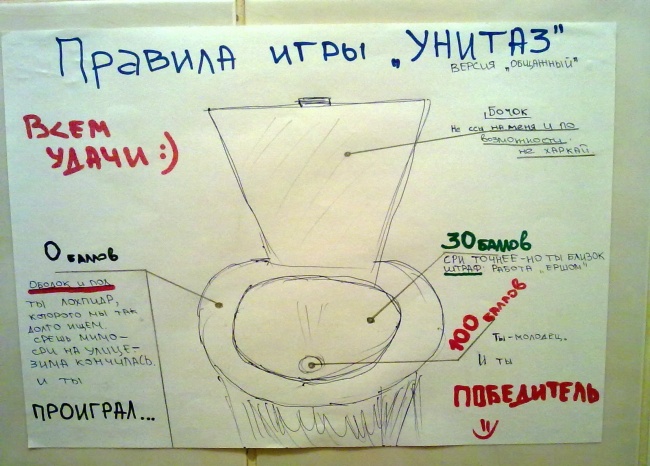 Правила игры "УНИТАЗ"
ВЕРСИЯ "ОБЩАЖНЫЙ"
ВСЕМ
УДАЧИ :)
БОЧОК
Не ссы на меня и по
возмотности.
не харкай
0 баллов
ОБОДОК и ПОЛ
ТЫ ЛОХПИДР,
которого мы так
долго ищем.
СРЕШЬ МИМО-
СРИ НА УЛИЦЕ-
ЗИМА КОНЧИЛАСЬ.
И ТЫ
ПРОИГРАЛ...
30 баллов
СРИ ТОЧНЕЕ-НО ТЫ БЛИЗОК
ШТРАФ: РАБОТА "ЕРШОМ"
100 баллов
Ты-молодец.
И ты
ПОБЕДИТЕЛЬ
=)